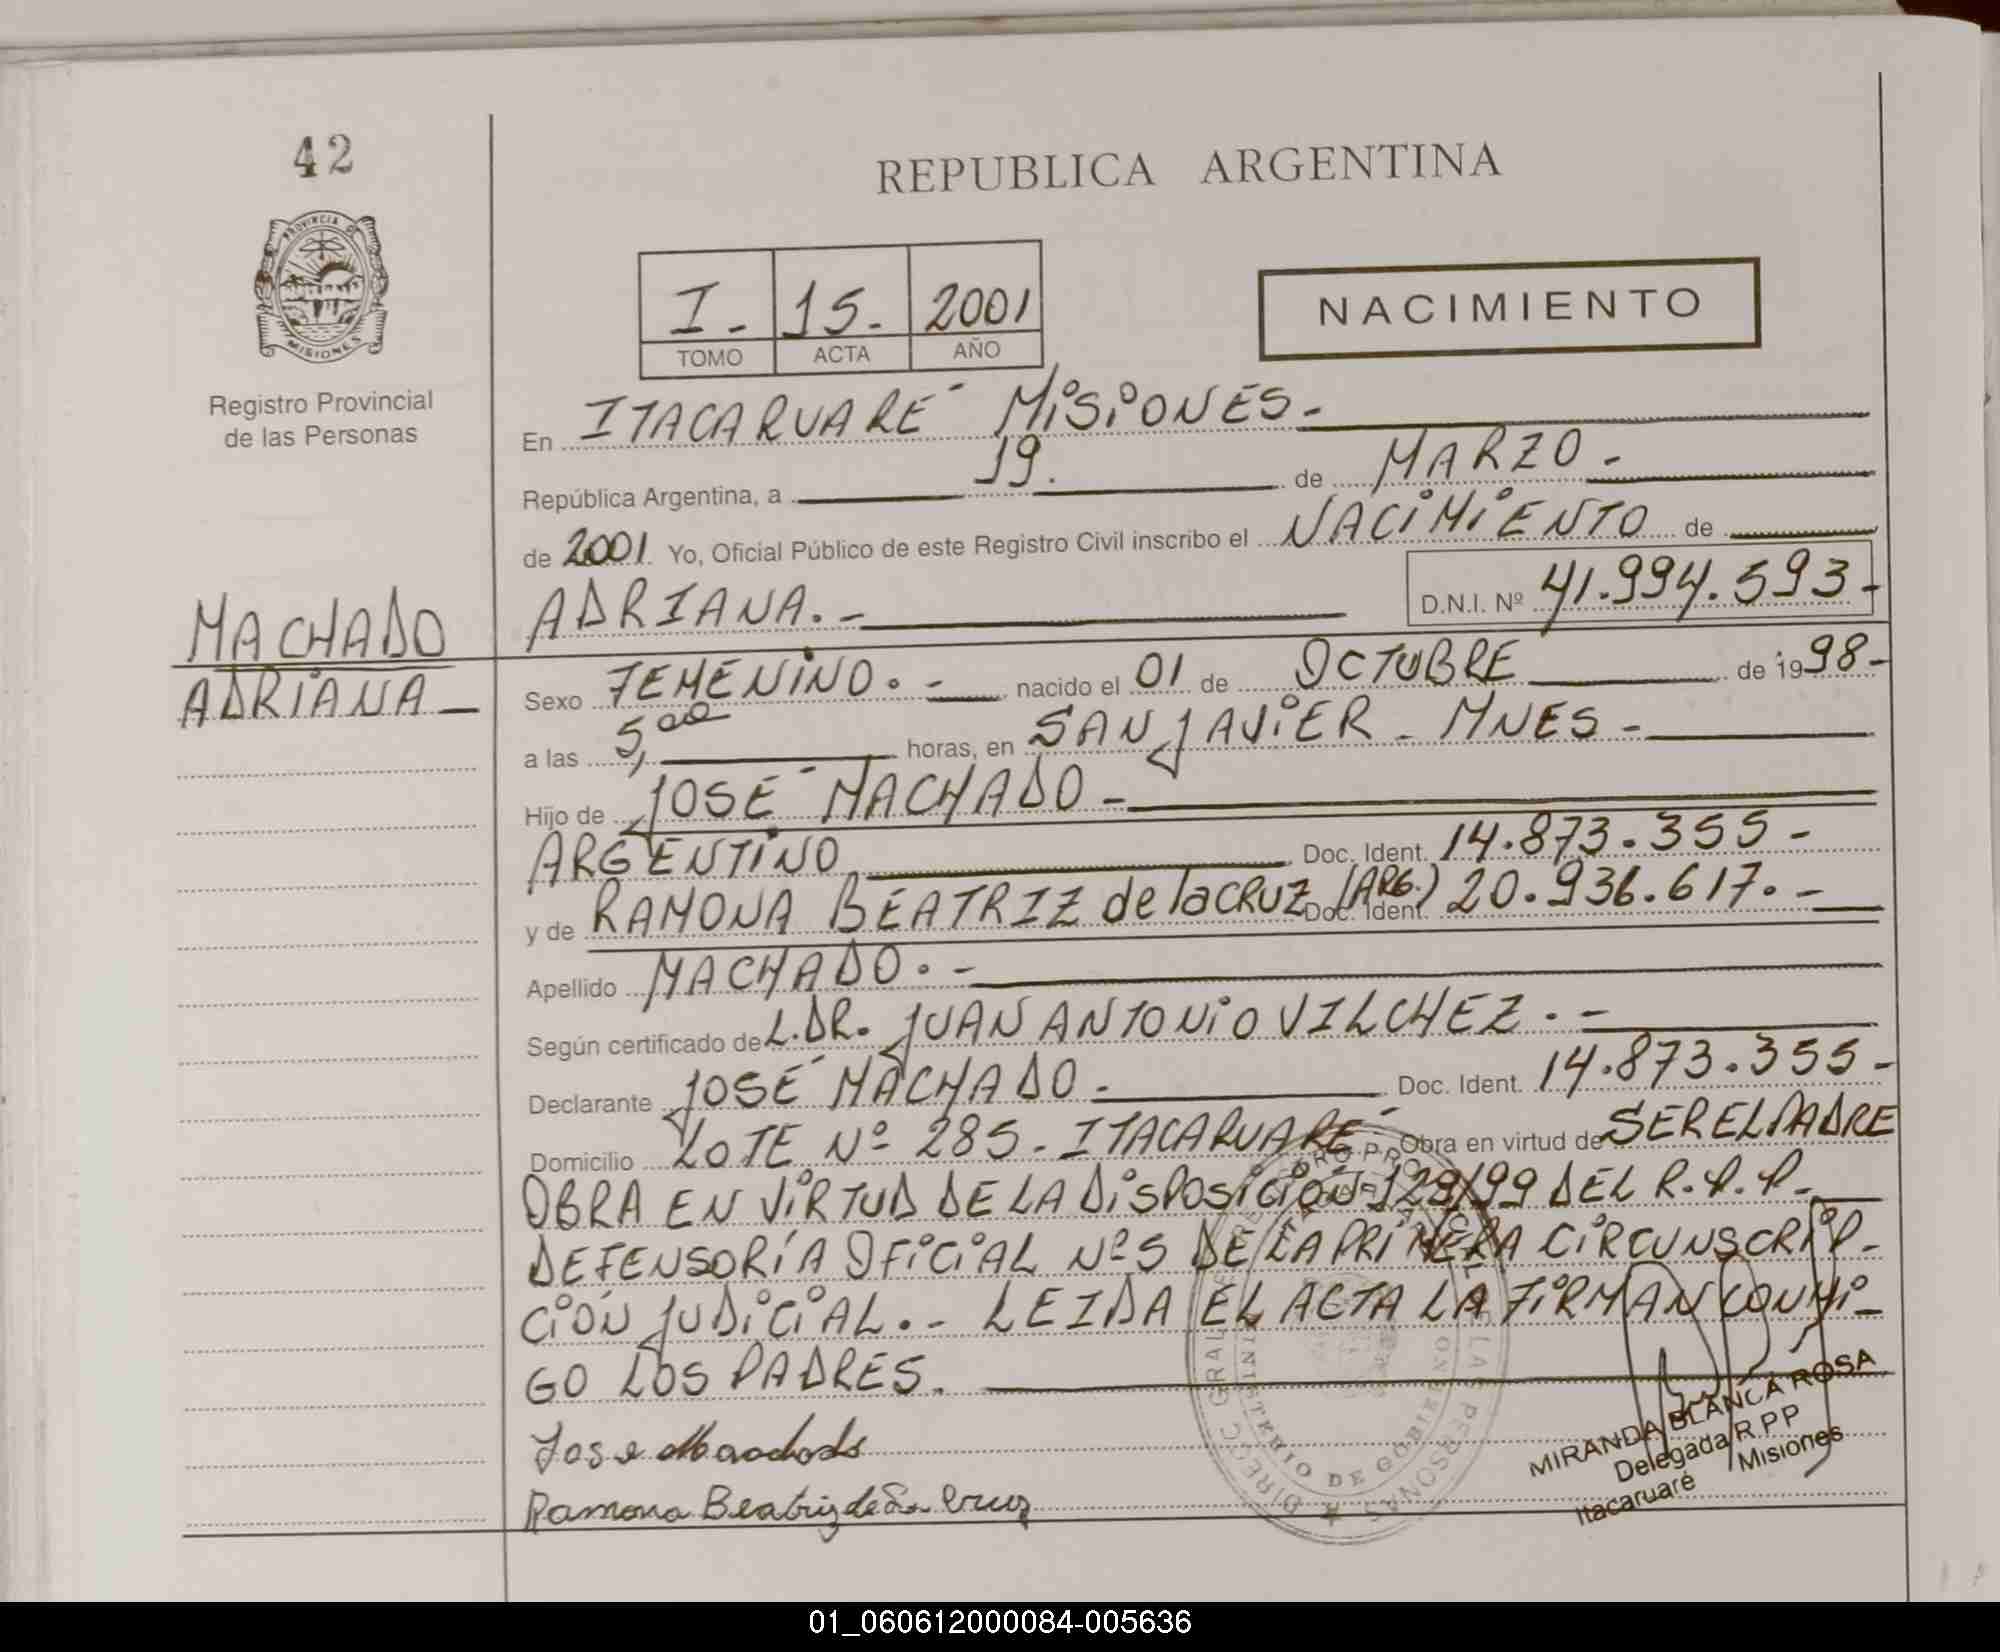 42
REPUBLICA ARGENTINA
PROVINCIA DE
MISIONES
I. 15. 2001
TOMO ACTA AÑO
NACIMIENTO
Registro Provincial
de las Personas
En ITACARUARÉ MISIONES.
República Argentina, a 19. de MARZO.
de 2001 Yo, Oficial Público de este Registro Civil inscribo el NACIMIENTO de
ADRIANA. - D.N.I. Nº 41.994.593-
MACHADO
ADRIANA
Sexo FEMENINO. - nacido el 01 de OCTUBRE de 1998-
a las 5,00 horas, en SAN JAVIER - MNES -
Hijo de JOSÉ MACHADO -
ARGENTINO Doc. Ident. 14.873.355-
y de RAMONA BEATRIZ de la CRUZ (ARG.) Doc. Ident. 20.936.617. -
Apellido MACHADO. -
Según certificado de L.DR. JUAN ANTONIO VILCHEZ. -
Declarante JOSÉ MACHADO - Doc. Ident. 14.873.355-
Domicilio LOTE Nº 285 - ITACARUARÉ Obra en virtud de SER EL PADRE
OBRA EN VIRTUD DE LA DISPOSICIÓN 129/99 DEL R.P.P.
DEFENSORÍA OFICIAL Nº5 DE LA PRIMERA CIRCUNSCRIP-
CIÓN JUDICIAL. - LEIDA EL ACTA LA FIRMAN CONMI-
GO LOS PADRES.
Jose Machado
Ramona Beatriz de La Cruz
MIRANDA BLANCA ROSA
Delegada R P P
Itacaruaré Misiones
01_060612000084-005636